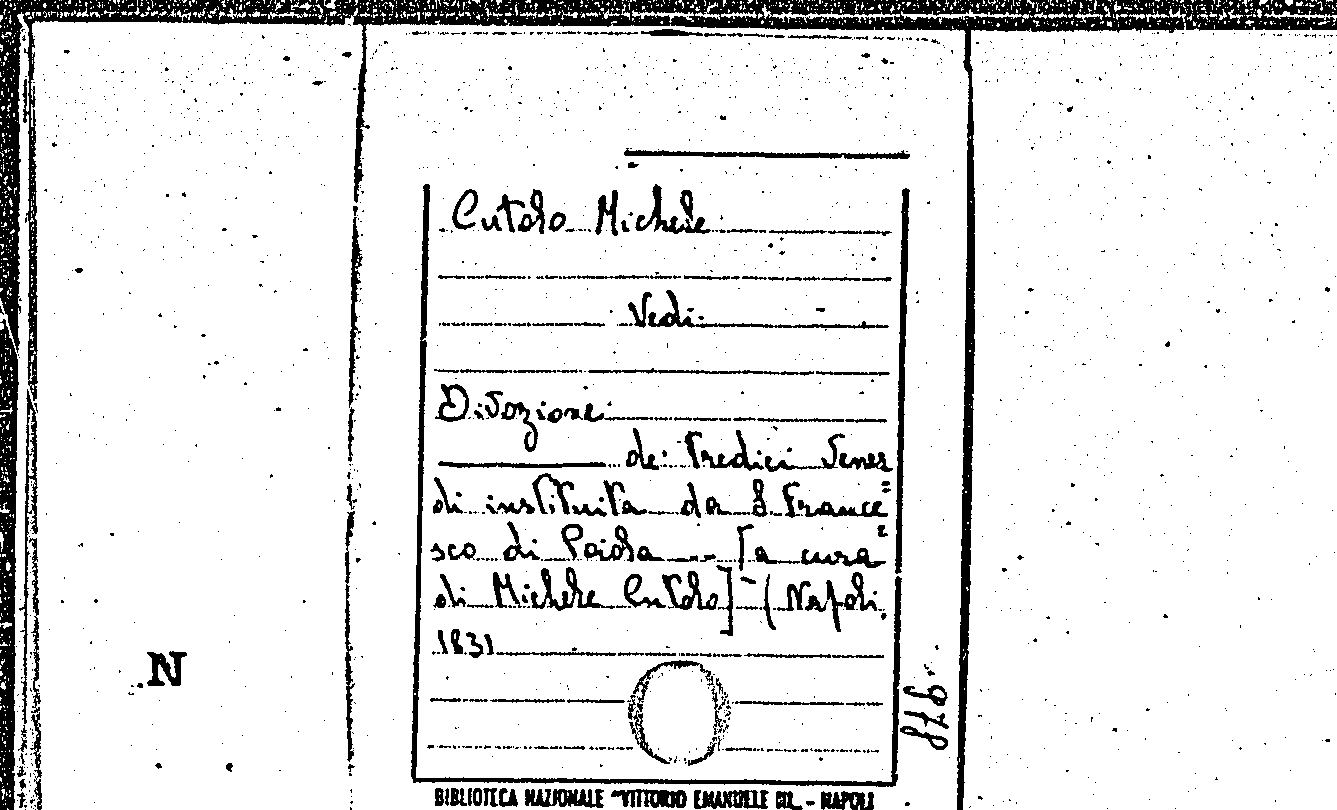 Cutolo Michele
Vedi:
Divozione
de' Tredici Vener
dì instituita da S. France
sco di Paola ... [a cura
di Michele Cutolo] - (Napoli
1831
N
BIBLIOTECA NAZIONALE "VITTORIO EMANUELE III" - NAPOLI